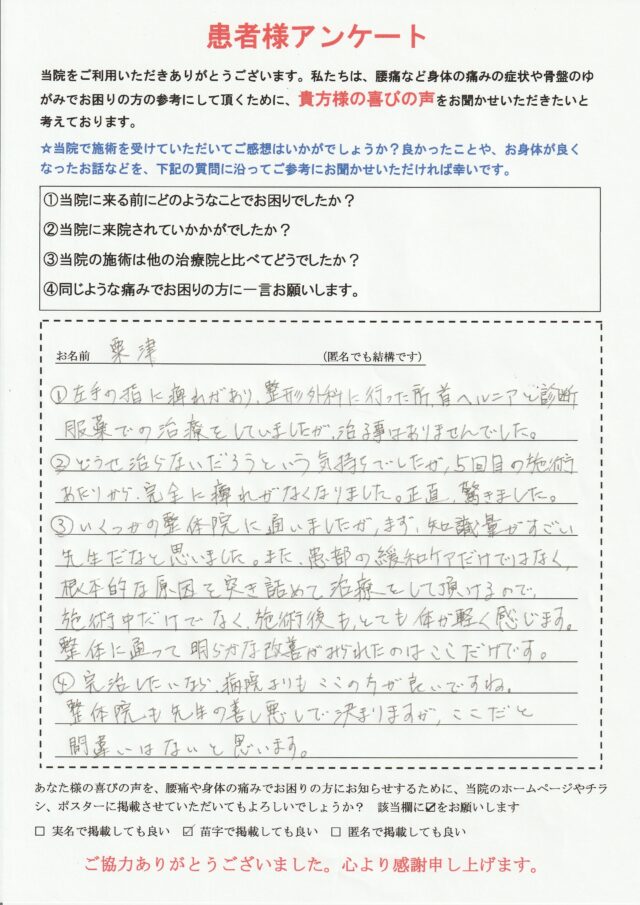 患者様アンケート
当院をご利用いただきありがとうございます。私たちは、腰痛など身体の痛みの症状や骨盤のゆ
がみでお困りの方の参考にして頂くために、貴方様の喜びの声をお聞かせいただきたいと
考えております。
☆当院で施術を受けていただいてご感想はいかがでしょうか？良かったことや、お身体が良く
なったお話などを、下記の質問に沿ってご参考にお聞かせいただければ幸いです。
①当院に来る前にどのようなことでお困りでしたか？
②当院に来院されていかかがでしたか？
③当院の施術は他の治療院と比べてどうでしたか？
④同じような痛みでお困りの方に一言お願いします。
お名前 粟津 (匿名でも結構です)
①左手の指に痺れがあり、整形外科に行った所、首ヘルニアと診断
服薬での治療をしていましたが、治る事はありませんでした。
②どうせ治らないだろうという気持ちでしたが、5回目の施術
あたりから、完全に痺れがなくなりました。正直、驚きました。
③いくつかの整体院に通いましたが、まず、知識量がすごい
先生だなと思いました。また、患部の緩和ケアだけではなく、
根本的な原因を突き詰めて治療をして頂けるので、
施術中だけでなく、施術後も、とても体が軽く感じます。
整体に通って明らかな改善がみられたのはここだけです。
④完治したいなら、病院よりもここの方が良いですね。
整体院も先生の善し悪しで決まりますが、ここだと
間違いはないと思います。
あなた様の喜びの声を、腰痛や身体の痛みでお困りの方にお知らせするために、当院のホームページやチラ
シ、ポスターに掲載させていただいてもよろしいでしょうか？ 該当欄に☑をお願いします
☐ 実名で掲載しても良い ☑ 苗字で掲載しても良い ☐ 匿名で掲載しても良い
ご協力ありがとうございました。心より感謝申し上げます。